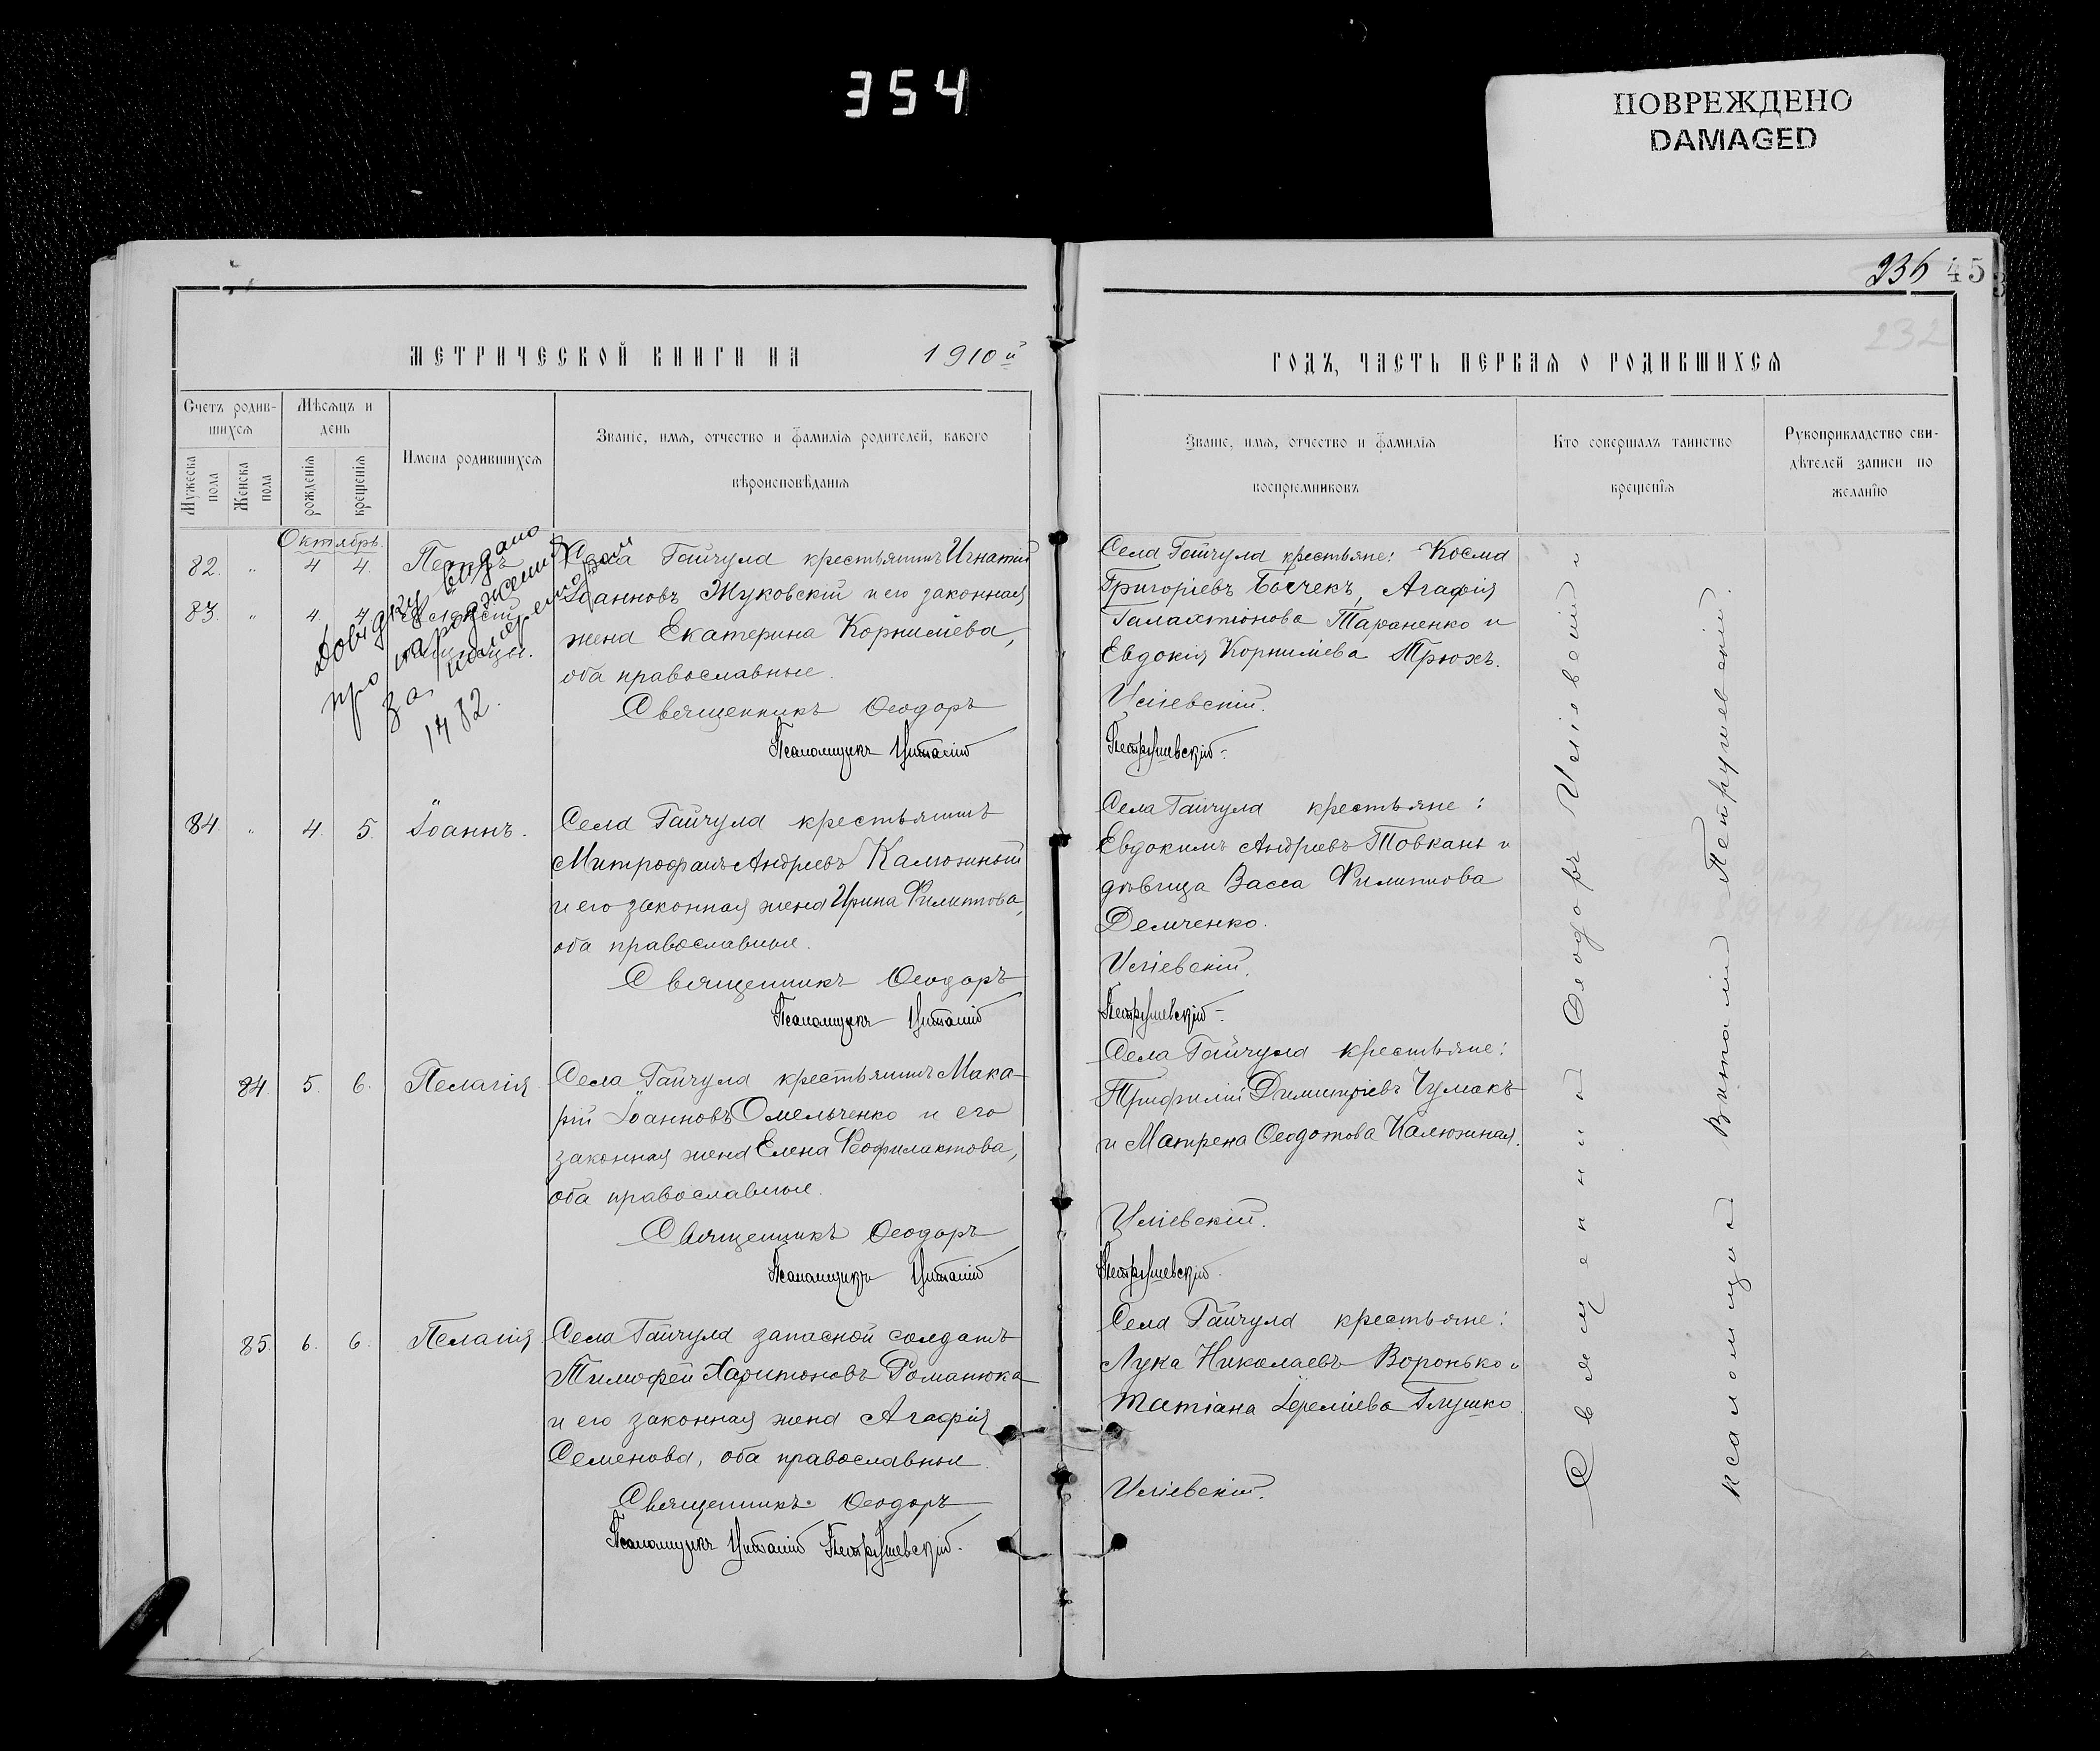 354
ПОВРЕЖДЕНО
DAMAGED
236 453
232
МЕТРИЧЕСКОЙ КНИГИ НА 1910й
ГОДЪ, ЧАСТЬ ПЕРВАЯ О РОДИВШИХСЯ
Счетъ родив-
шихся
Мужеска пола
Женска пола
Мѣсяцъ и
день
рожденія
крещенія
Имена родившихся
Званіе, имя, отчество и фамилія родителей, какого
вѣроисповѣданія
Званіе, имя, отчество и фамилія
воспріемниковъ
Кто совершалъ таинство
крещенія
Рукоприкладство сви-
дѣтелей записи по
желанію
Октябрь.
82. " 4 4. Петръ
83. " 4. 4
близнецы.
Довідку видано
про народження
за номером
1482.
Села Гайчула крестьянинъ Игнатій
Іоанновъ Жуковскій и его законная
жена Екатерина Корниліева,
оба православные.
Священникъ Ѳеодоръ
Псаломщикъ Виталій
Села Гайчула крестьяне: Косма
Григоріевъ Бычекъ, Агафія
Галактіонова Тараненко и
Евдокія Корниліева Трюхъ.
Иліевскій.
Петрушевскій.
84. " 4. 5. Іоаннъ.
Села Гайчула крестьянинъ
Митрофанъ Андреевъ Калюжный
и его законная жена Ирина Филиппова,
оба православные.
Священникъ Ѳеодоръ
Псаломщикъ Виталій
Села Гайчула крестьяне:
Евдокимъ Андреевъ Товкань и
дѣвица Васса Филиппова
Демченко.
Иліевскій.
Петрушевскій.
84. 5. 6. Пелагія
Села Гайчула крестьянинъ Мака-
рій Іоанновъ Омельченко и его
законная жена Елена Феофилактова,
оба православные.
Священникъ Ѳеодоръ
Псаломщикъ Виталій
Села Гайчула крестьяне:
Трифилій Димитріевъ Чумакъ
и Матрена Ѳеодотова Калюжная.
Иліевскій.
Петрушевскій.
85. 6. 6. Пелагія
Села Гайчула запасной солдатъ
Тимофей Харитоновъ Романюка
и его законная жена Агафія
Семенова, оба православные.
Священникъ Ѳеодоръ
Псаломщикъ Виталій Петрушевскій.
Села Гайчула крестьяне:
Лука Николаевъ Воронько и
Татіана Іереміева Глушко.
Иліевскій.
Священникъ Ѳеодоръ Иліевскій и
псаломщикъ Виталій Петрушевскій.